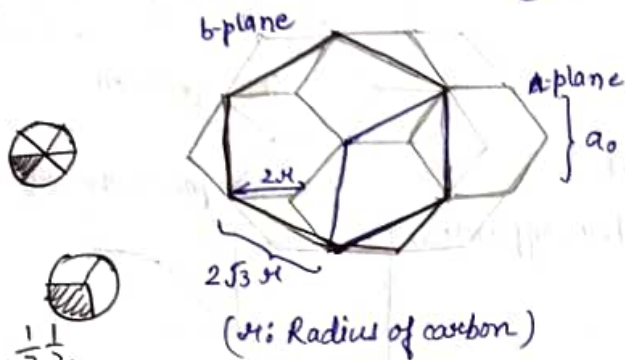 b-plane
A-plane
a₀
2r
2√3 r
(r: Radius of carbon)